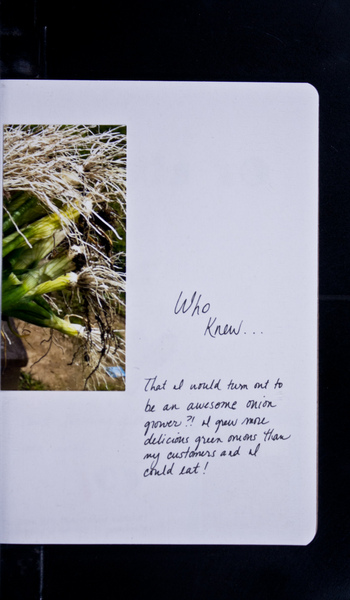 Who
Knew...
That I would turn out to
be an awesome onion
grower?! I grew more
delicious green onions than
my customers and I
could eat!